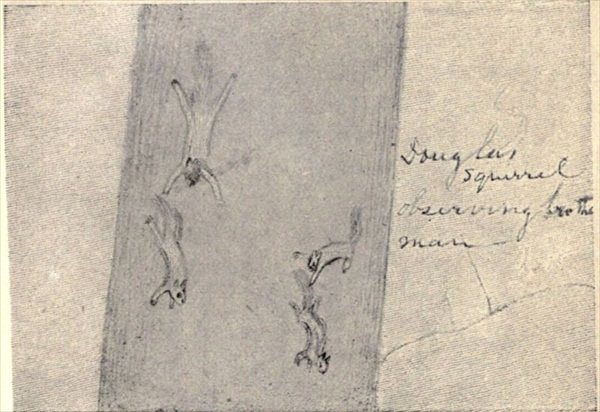 Douglas
squirrel
observing brothe
man